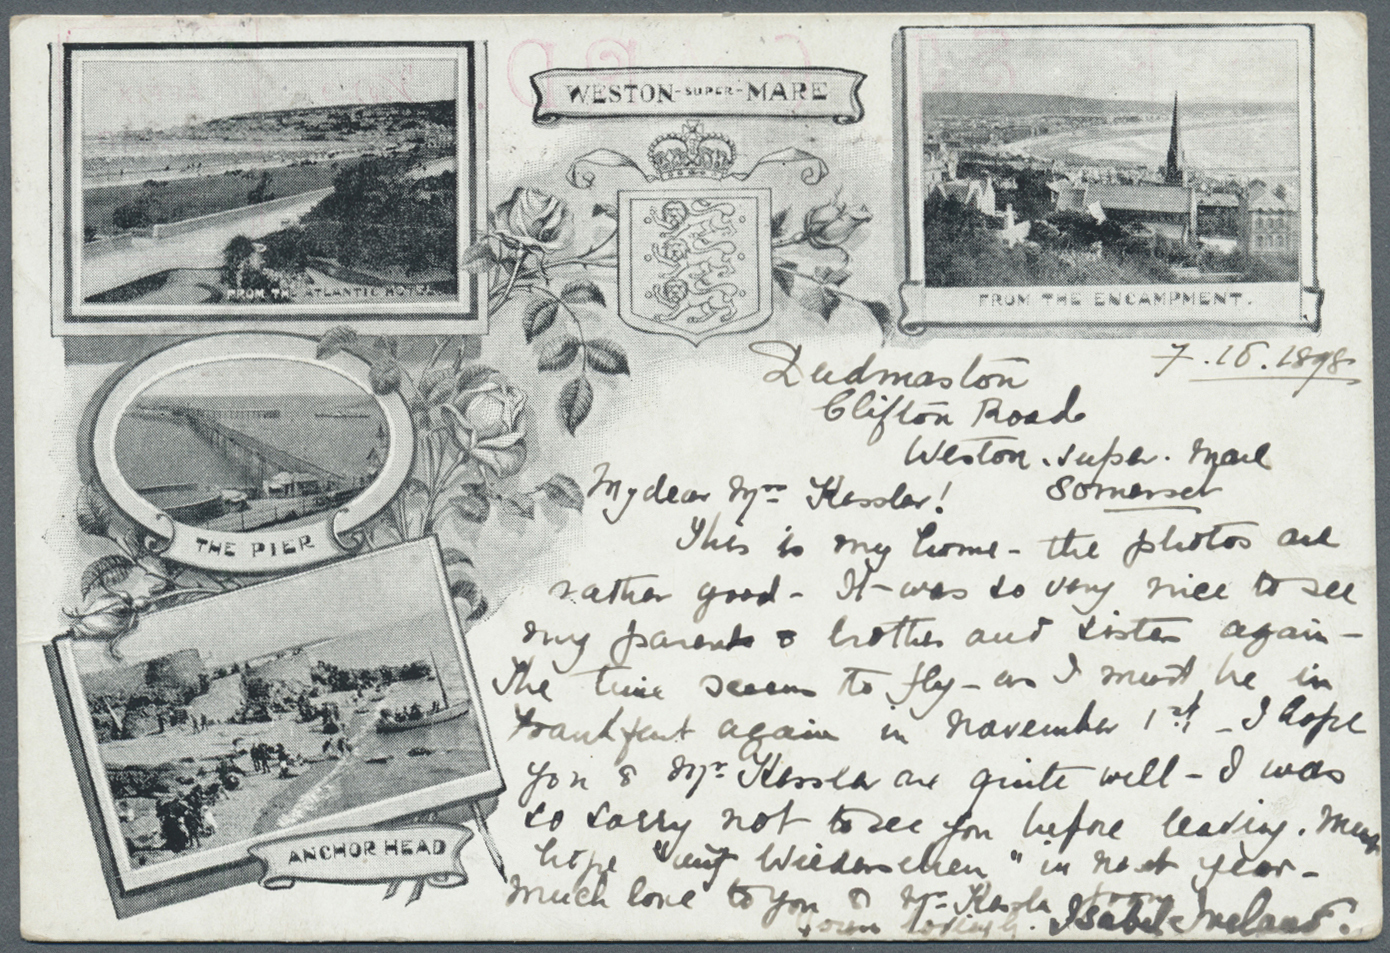 WESTON-SUPER-MARE
FROM THE ATLANTIC HOTEL
FROM THE ENCAMPMENT.
THE PIER
ANCHOR HEAD
7.10.1898
Dudmaston
Clifton Road
Weston-super-Mare
Somerset
My dear Mrs Kessler!
This is my home - the photos are
rather good - It was so very nice to see
my parents & brother and sister again -
The time seems to fly - as I must be in
Frankfurt again in November 1st - I hope
you & Mr Kessler are quite well - I was
so sorry not to see you before leaving.
hope "auf Wiedersehen" in next year -
Much love to you & Mr Kessler from
Your lovingly. Isabel Ireland.